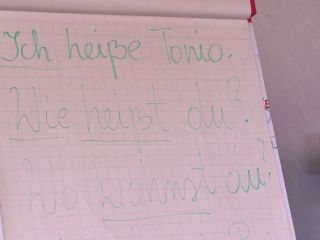 Ich heiße Tonio.
Wie heißt du?
Wo wohnst du?